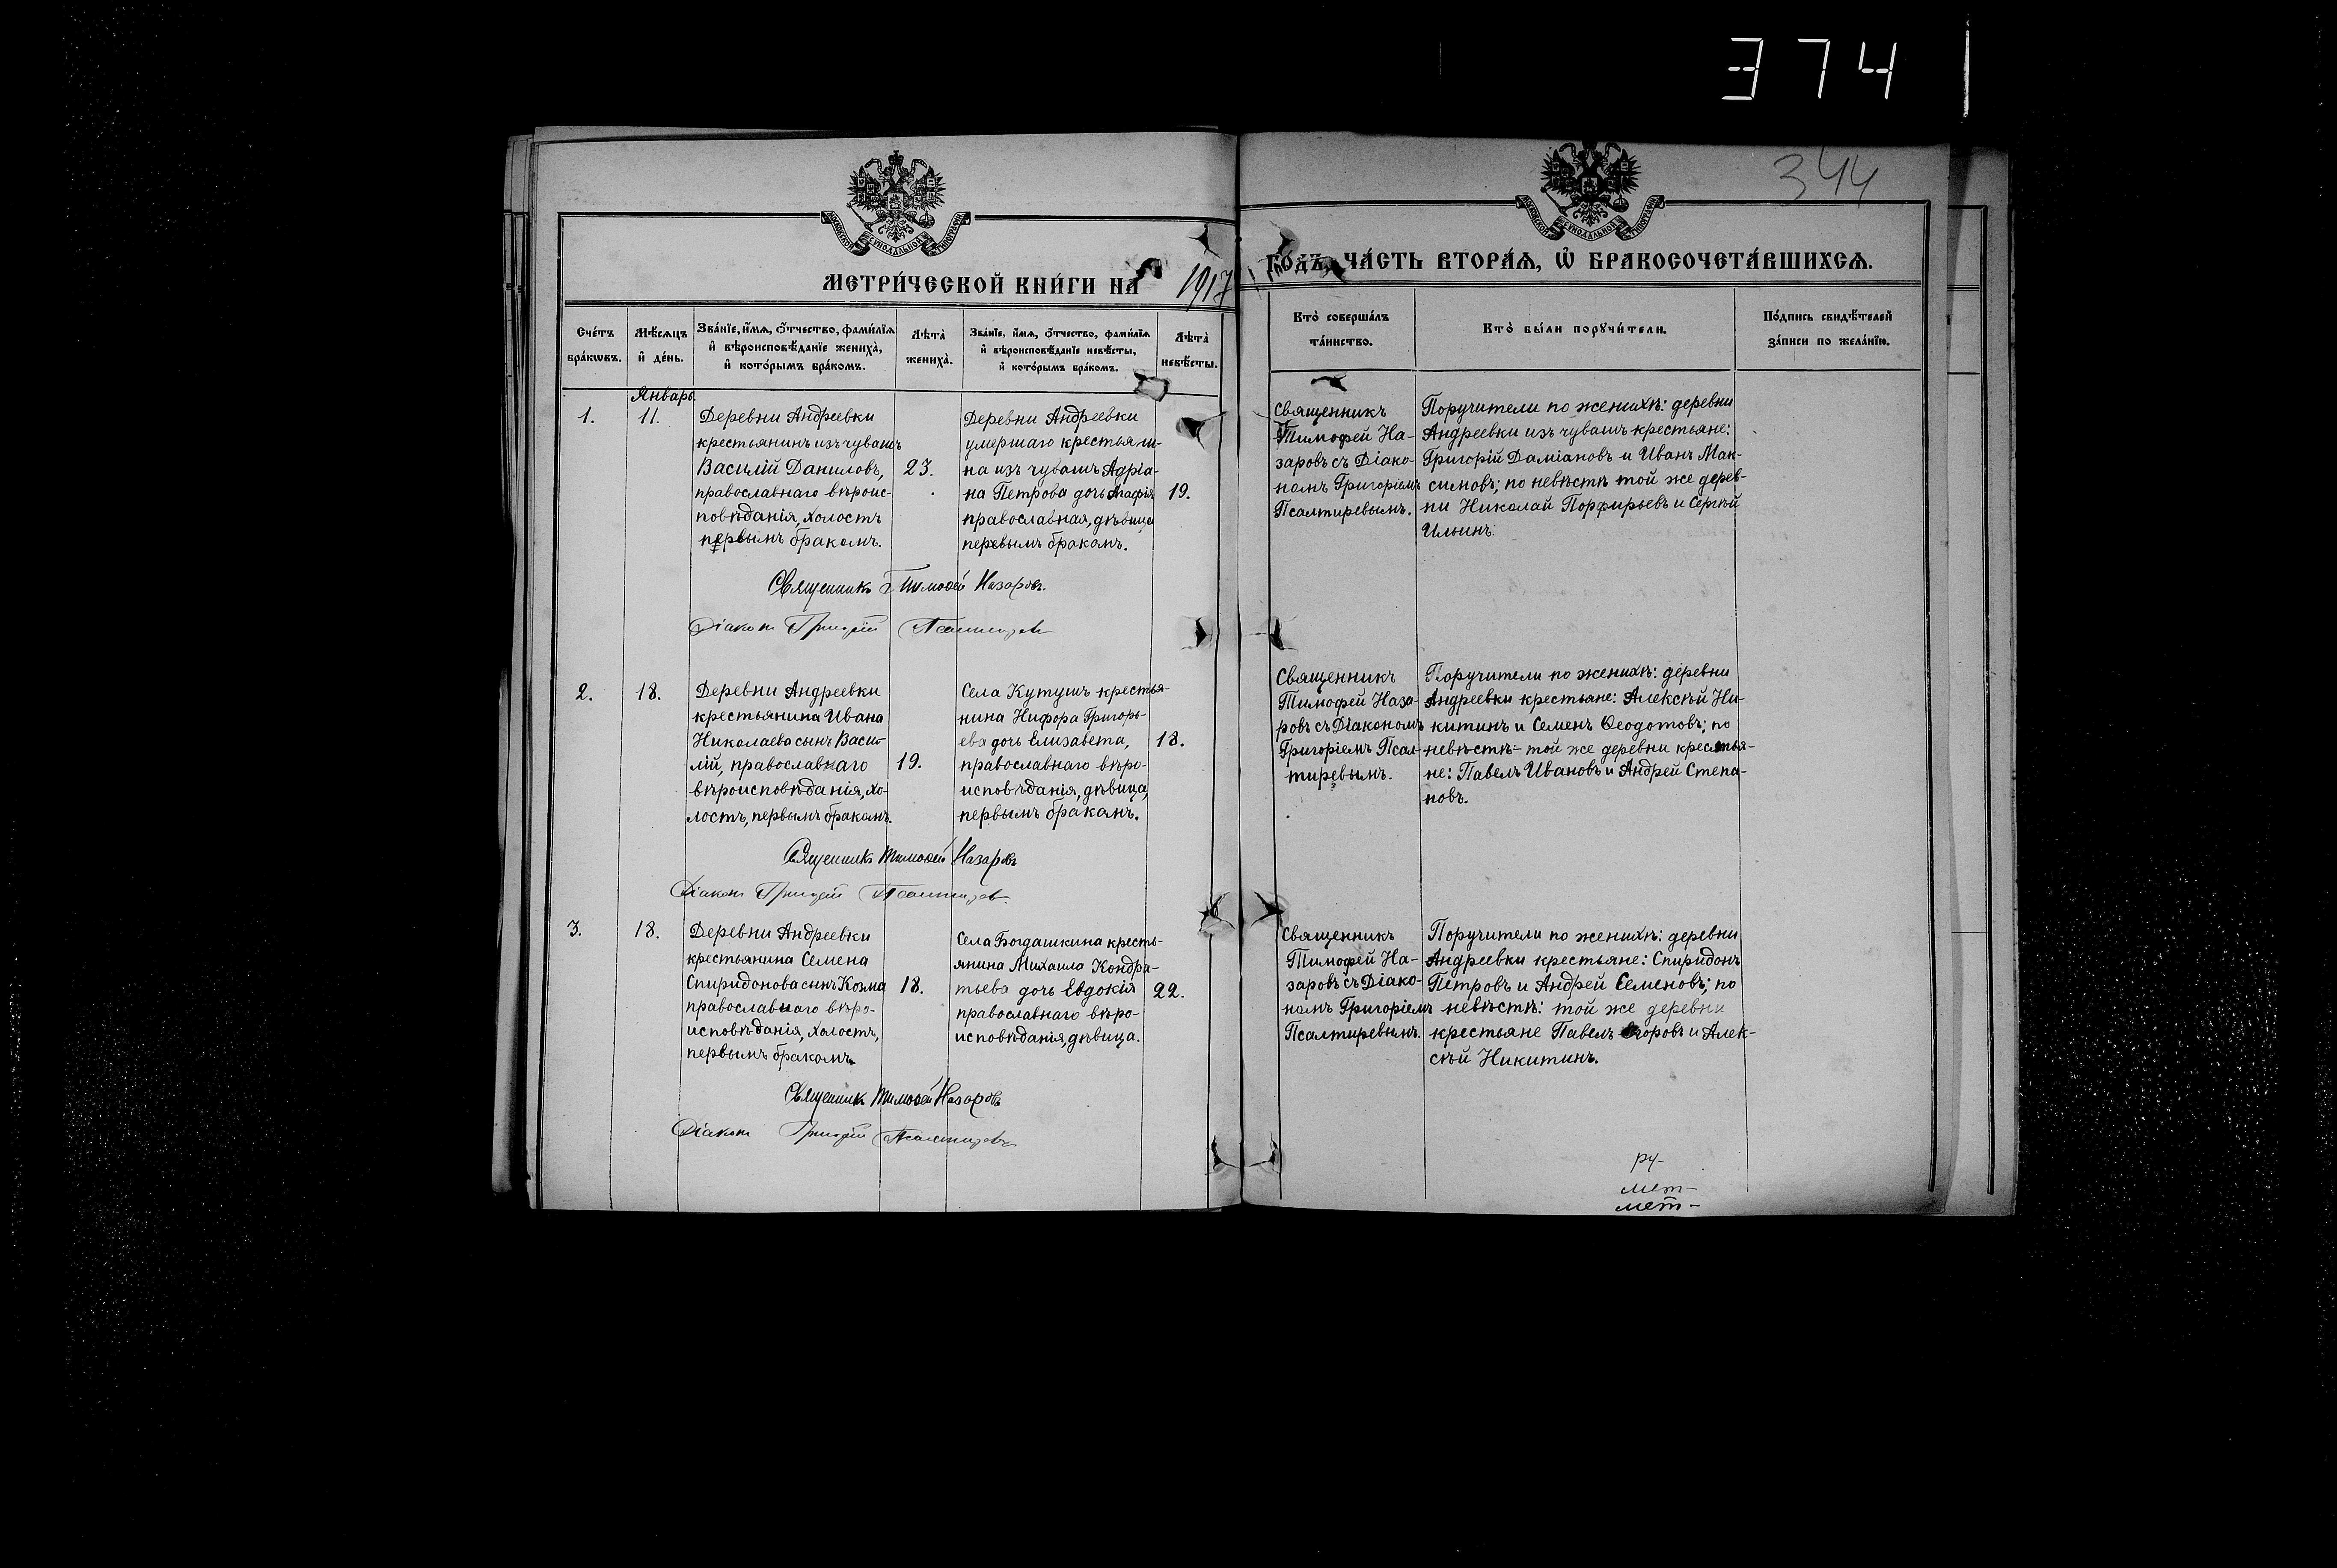 374
344
МЕТРИ́ЧЕСКОЙ КНИ́ГИ НА 1917
ГО́ДЪ, ЧА́СТЬ ВТОРА́Я, Ѡ҆ БРАКОСОЧЕТА́ВШИХСЯ.
Сче́тъ бра́кѡвъ.
Мѣ́сяцъ и҆ де́нь.
Зва́нїе, и҆́мя, ѻ҆́тчество, фами́лїя
и҆ вѣроисповѣ́данїе жениха̀,
и҆ кото́рымъ бра́комъ.
Лѣ́та жениха̀.
Зва́нїе, и҆́мя, ѻ҆́тчество, фами́лїя
и҆ вѣроисповѣ́данїе невѣ́сты,
и҆ кото́рымъ бра́комъ.
Лѣ́та невѣ́сты.
Кто̀ соверша́лъ
та́инство.
Кто̀ бы́ли порꙋчи́тели.
По́дпись свидѣ́телей
за́писи по жела́нїю.
Январь.
1.
11.
Деревни Андреевки
крестьянинъ изъ чувашъ
Василій Даниловъ,
православнаго вѣроис-
повѣданія, холостъ
первымъ бракомъ.
23.
Деревни Андреевки
умершаго крестьяни-
на изъ чувашъ Адріа-
на Петрова дочь Агафія
православная, дѣвица
первымъ бракомъ.
19.
Священникъ
Тимофей На-
заровъ съ Діако-
номъ Григоріемъ
Псалтиревымъ.
Поручители по женихѣ: деревни
Андреевки изъ чувашъ крестьяне:
Григорій Даміановъ и Иванъ Мак-
симовъ; по невѣстѣ той же дерев-
ни Николай Порфирьевъ и Сергѣй
Ильинъ.
Священникъ Тимоѳей Назаровъ.
Діаконъ Григорій Псалтиревъ
2.
18.
Деревни Андреевки
крестьянина Ивана
Николаева сынъ Васи-
лій, православнаго
вѣроисповѣданія, хо-
лостъ, первымъ бракомъ.
19.
Села Кутушъ крестья-
нина Нифора Григорь-
ева дочь Елизавета,
православнаго вѣро-
исповѣданія, дѣвица,
первымъ бракомъ.
18.
Священникъ
Тимофей Наза-
ровъ съ Діакономъ
Григоріемъ Псал-
тиревымъ.
Поручители по женихѣ: деревни
Андреевки крестьяне: Алексѣй Ни-
китинъ и Семенъ Ѳеодотовъ; по
невѣстѣ- той же деревни крестья-
не: Павелъ Ивановъ и Андрей Степа-
новъ.
Священникъ Тимоѳей Назаровъ
Діаконъ Григорій Псалтиревъ.
3.
18.
Деревни Андреевки
крестьянина Семена
Спиридонова сынъ Козма
православнаго вѣро-
исповѣданія, холостъ,
первымъ бракомъ.
18.
Села Богдашкина кресть-
янина Михаила Кондра-
тьева дочь Евдокія
православнаго вѣро-
исповѣданія, дѣвица.
22.
Священникъ
Тимофей На-
заровъ съ Діако-
номъ Григоріемъ
Псалтиревымъ.
Поручители по женихѣ: деревни
Андреевки крестьяне: Спиридонъ
Петровъ и Андрей Семеновъ; по
невѣстѣ: той же деревни
крестьяне Павелъ Егоровъ и Алек-
сѣй Никитинъ.
Священникъ Тимоѳей Назаровъ
Діаконъ Григорій Псалтиревъ
ру-
мет-
мет-